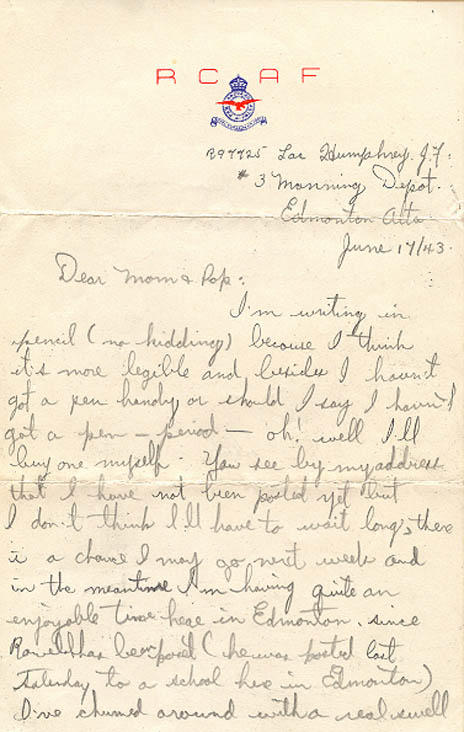 RCAF
R97725 Lac Humphrey. J.F.
# 3 Manning Depot.
Edmonton Alta.
June 17/43.
Dear Mom & Pop:
I'm writing in
pencil (no kidding) because I think
it's more legible and besides I haven't
got a pen handy or should I say I haven't
got a pen – period – oh! well I'll
buy one myself. You see by my address
that I have not been posted yet but
I don't think I'll have to wait long, there
is a chance I may go next week and
in the meantime I'm having quite an
enjoyable time here in Edmonton. since
has been (he was posted last
Saturday to a school here in Edmonton)
I've chummed around with a real swell